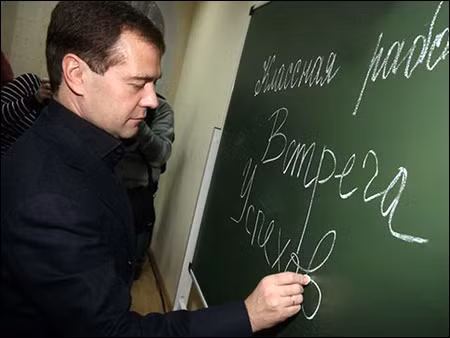 Классная
Встреча
Успехов